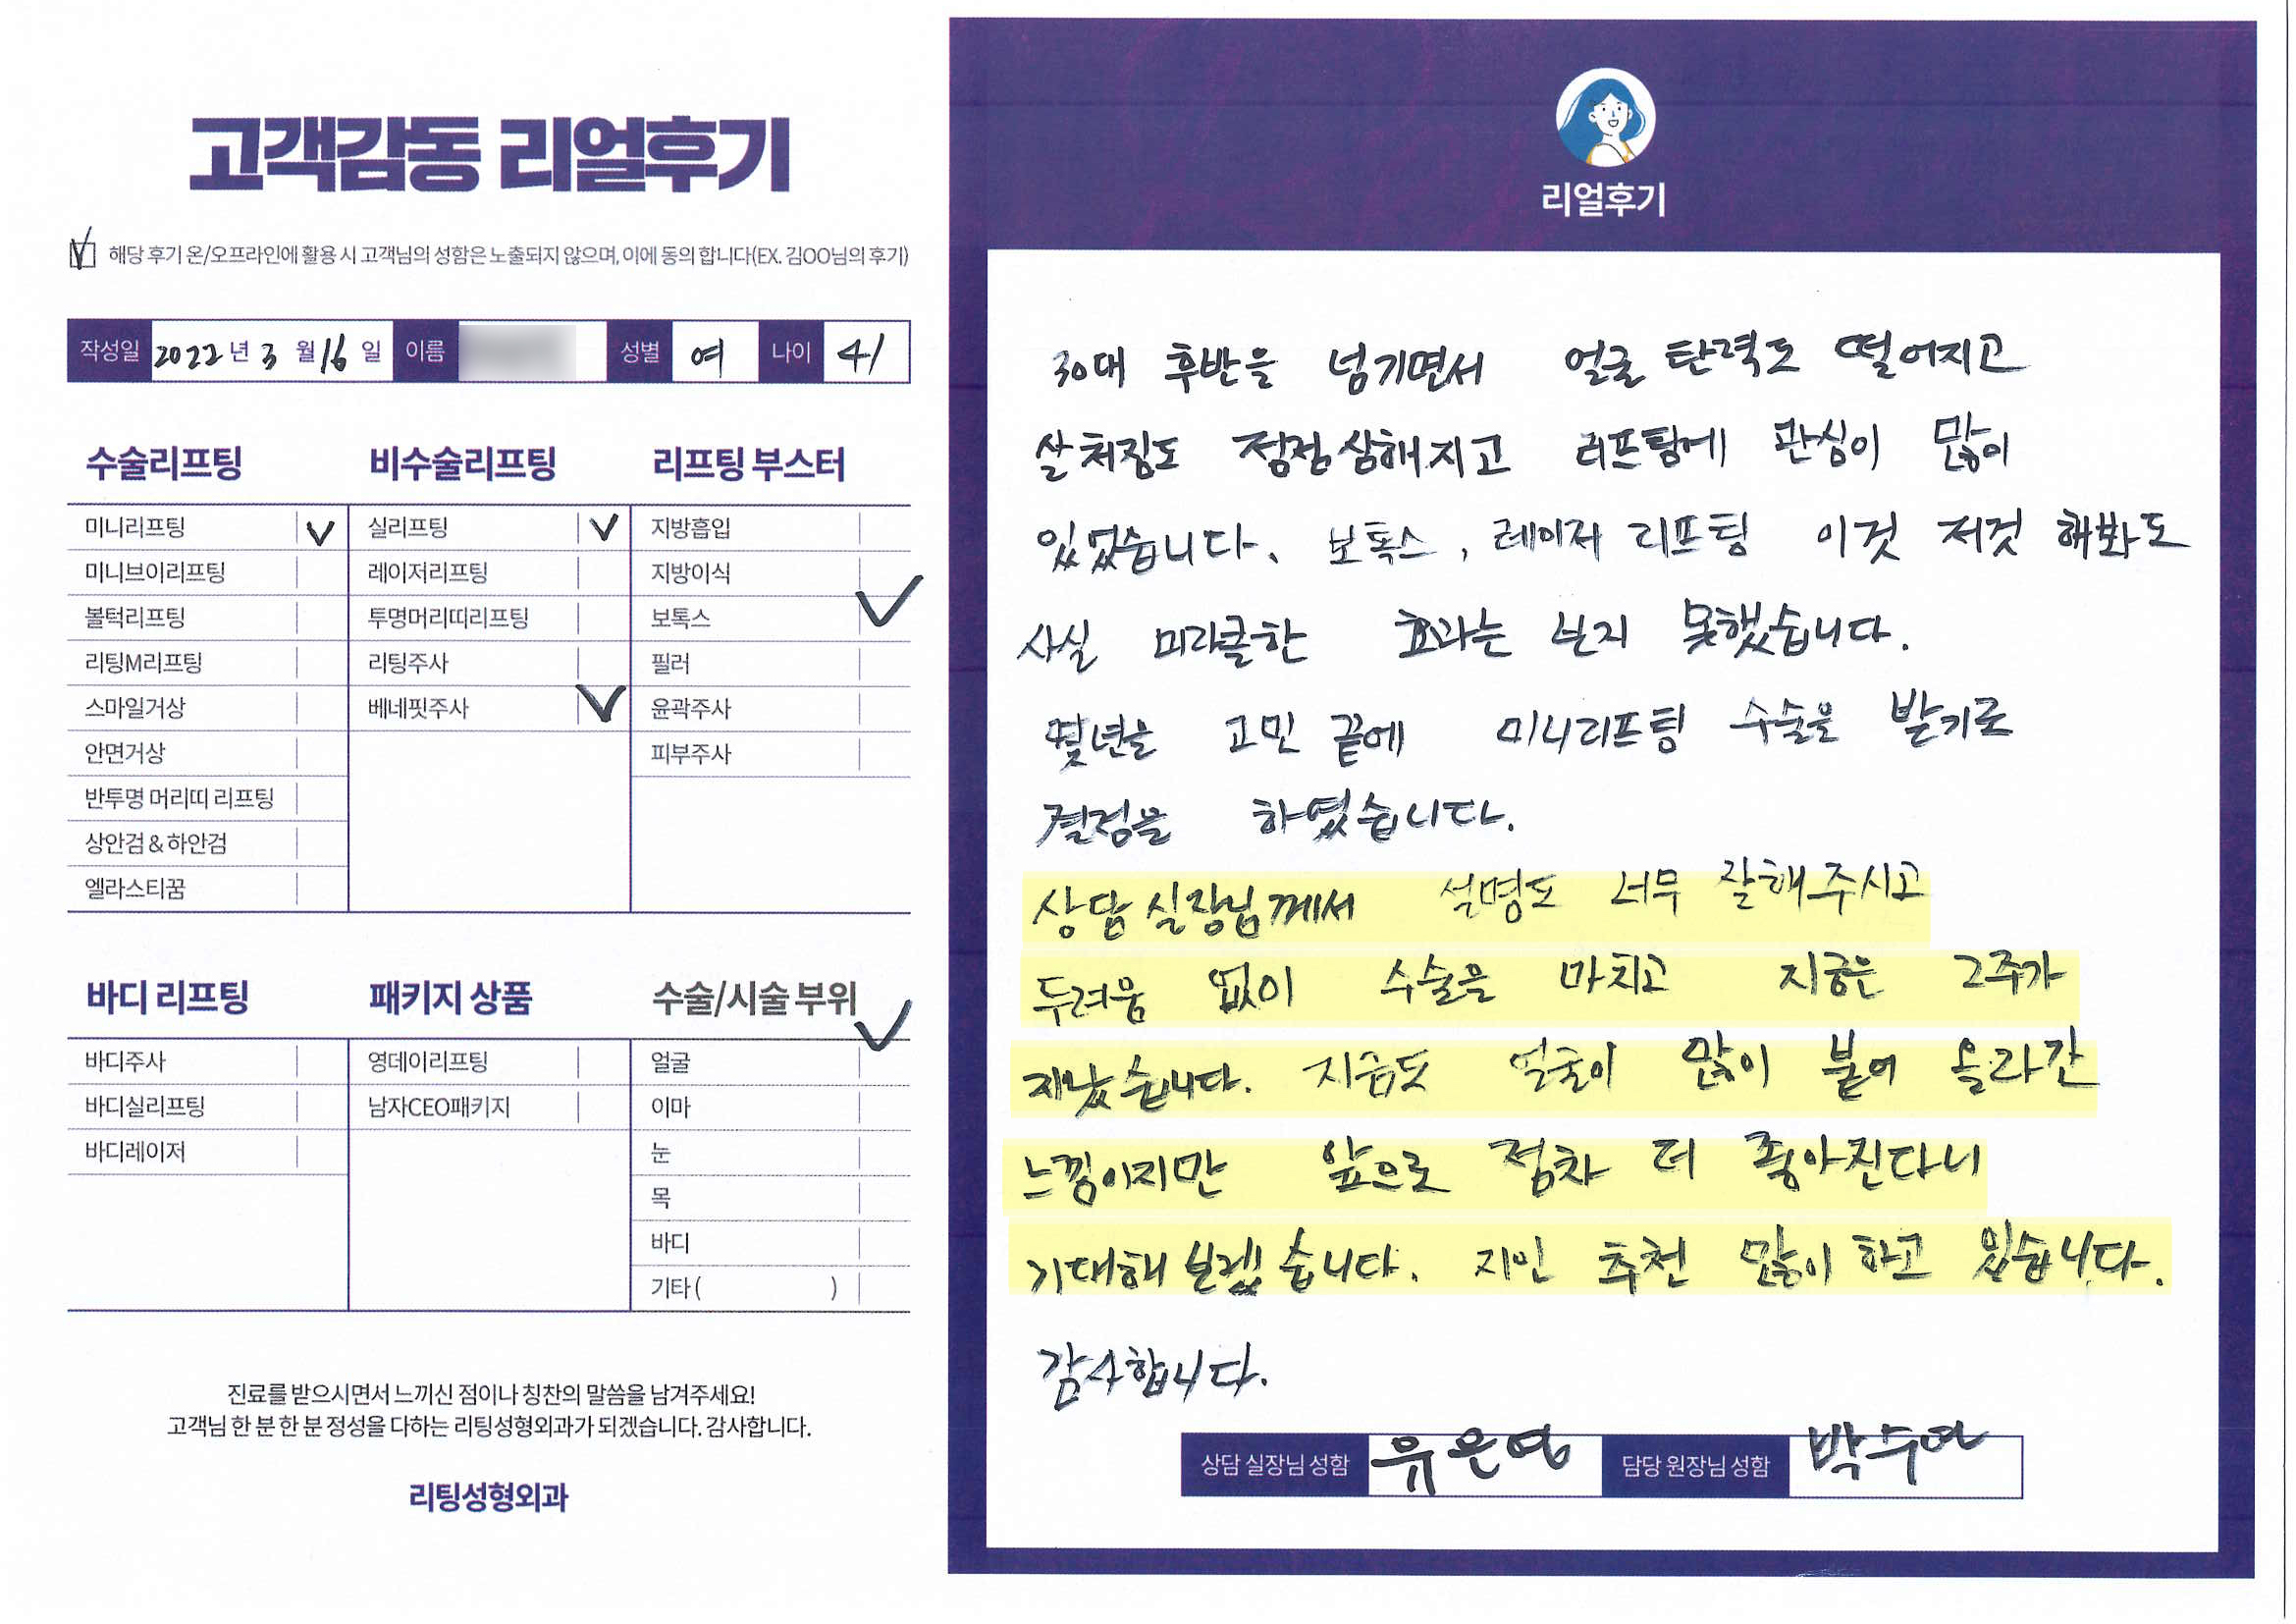 고객감동 리얼후기
해당 후기 온/오프라인에 활용 시 고객님의 성함은 노출되지 않으며, 이에 동의 합니다(EX. 김OO님의 후기)
작성일 2022 년 3 월 16 일 이름 성별 여 나이 41
수술리프팅
미니리프팅 V
미니브이리프팅
볼턱리프팅
리팅M리프팅
스마일거상
안면거상
반투명 머리띠 리프팅
상안검 & 하안검
엘라스티꿈
비수술리프팅
실리프팅 V
레이저리프팅
투명머리띠리프팅
리팅주사
베네핏주사 V
리프팅 부스터
지방흡입
지방이식
보톡스 V
필러
윤곽주사
피부주사
바디 리프팅
바디주사
바디실리프팅
바디레이저
패키지 상품
영데이리프팅
남자CEO패키지
수술/시술 부위
얼굴 V
이마
눈
목
바디
기타 ( )
진료를 받으시면서 느끼신 점이나 칭찬의 말씀을 남겨주세요!
고객님 한 분 한 분 정성을 다하는 리팅성형외과가 되겠습니다. 감사합니다.
리팅성형외과
리얼후기
30대 후반을 넘기면서 얼굴 탄력도 떨어지고
살 처짐도 점점 심해지고 리프팅에 관심이 많이
있었습니다. 보톡스, 레이저 리프팅 이것 저것 해봐도
사실 미라클한 효과는 보지 못했습니다.
몇년을 고민 끝에 미니리프팅 수술을 받기로
결정을 하였습니다.
상담 실장님께서 설명도 너무 잘해주시고
두려움 없이 수술을 마치고 지금은 2주가
지났습니다. 지금도 얼굴이 많이 붙어 올라간
느낌이지만 앞으로 점차 더 좋아진다니
기대해 보겠습니다. 지인 추천 많이 하고 있습니다.
감사합니다.
상담 실장님 성함 유은영 담당 원장님 성함 박수연